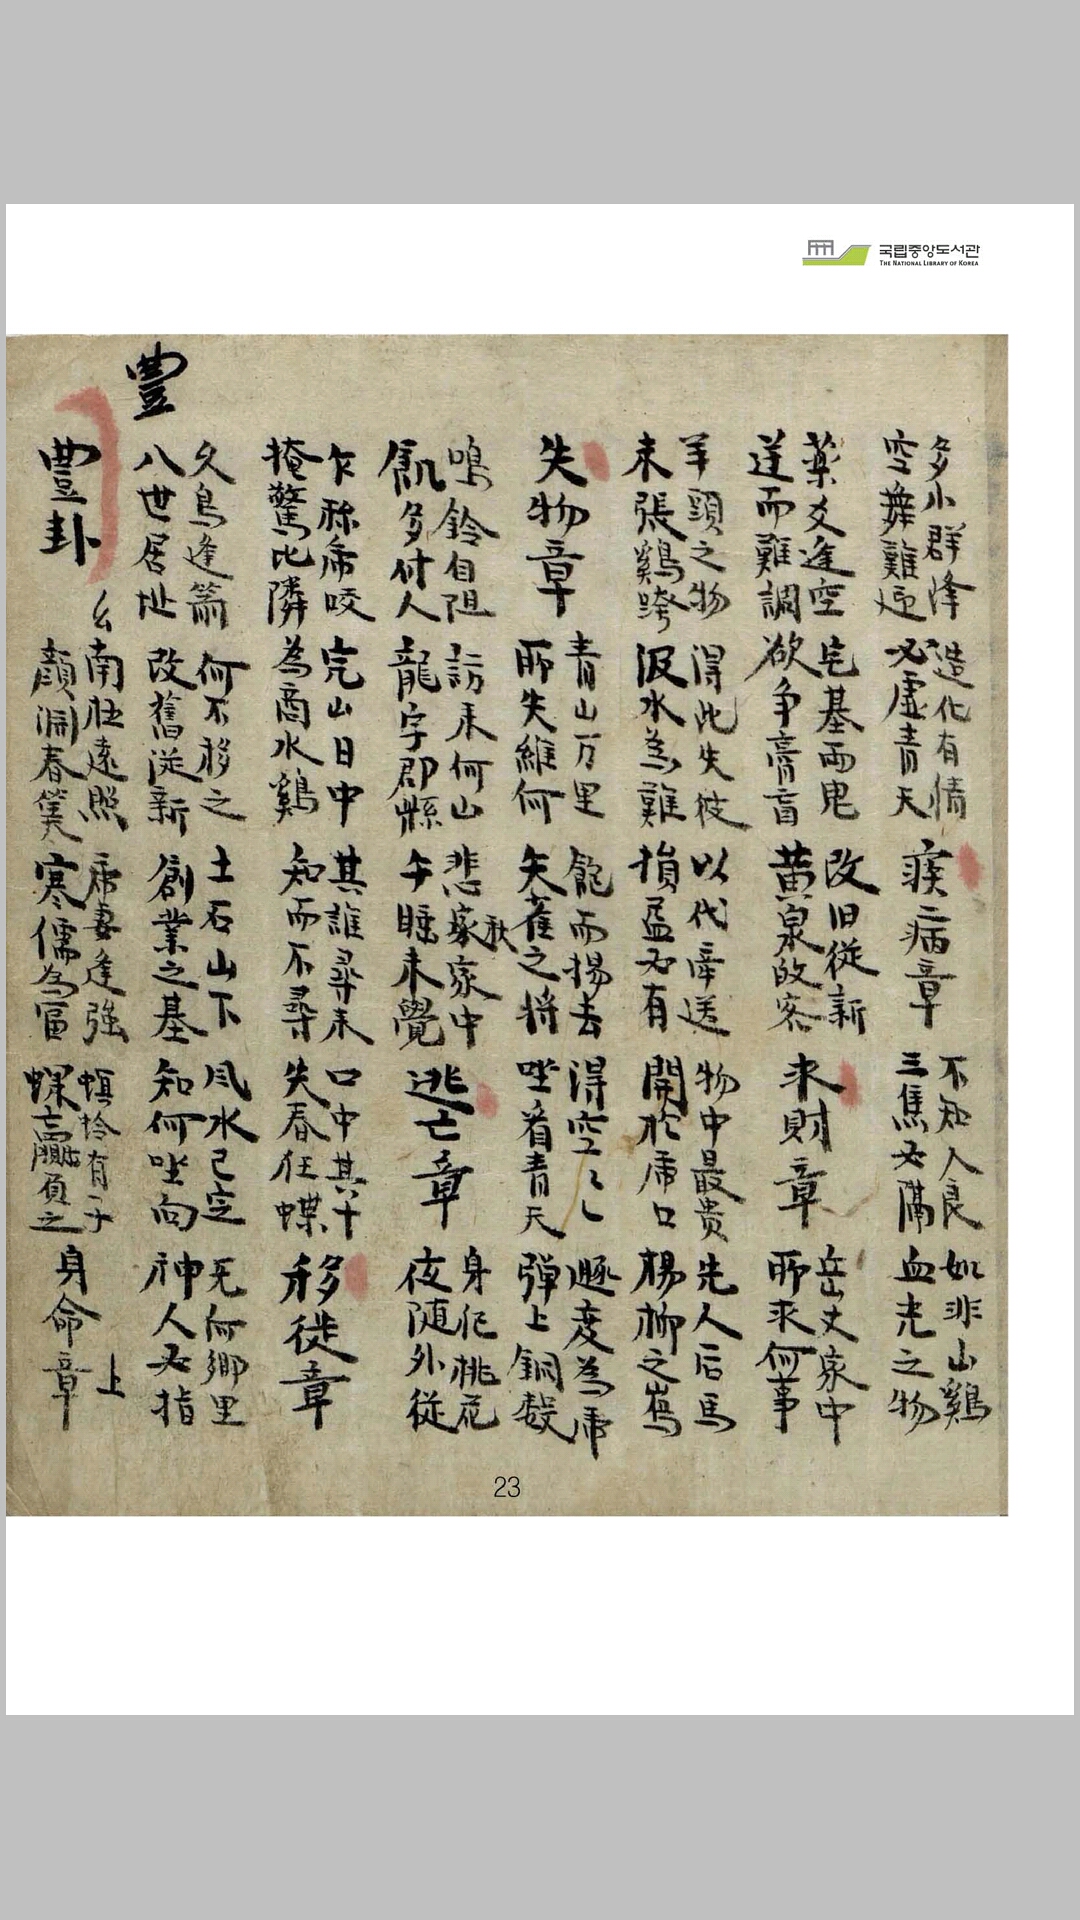 국립중앙도서관
THE NATIONAL LIBRARY OF KOREA
多小群降
空舞難返
造化有情
必虛青天
疾病章
不知人良
三焦必隔
如非山鷄
血光之物
藥爻逢空
逆而難調
宅基雨鬼
欲争膏盲
改旧從新
黄泉故客
求財章
岳丈家中
所求何事
羊頭之物
未張鷄跨
得此失彼
汲水為難
以代牽送
損益必有
物中最贵
開於虎口
先人后馬
楊柳之
失物章
青山万里
所失維何
飽而揚去
失雀之將
得空〻〻
坐看青天
度為虎
彈上銅
鳴鈴自阻
飢多付人
訪求何山
龍字郡縣
悲家家中
秋
午睡未覺
逃亡章
身犯桃花
夜随外從
乍称虎咬
掩驚比隣
完山日中
為商水鷄
其誰尋未
知而不尋
口中其十
失春狂蝶
移徙章
久鳥逢箭
八世居址
何不移之
改舊從新
土石山下
創業之基
風水已定
知何坐向
死何鄉里
神人必指
豊
豊卦
南遠照
顔洞春
虎妻逢強
寒儒為富
螟拾有子
蜾蠃負之
身命章
上
23